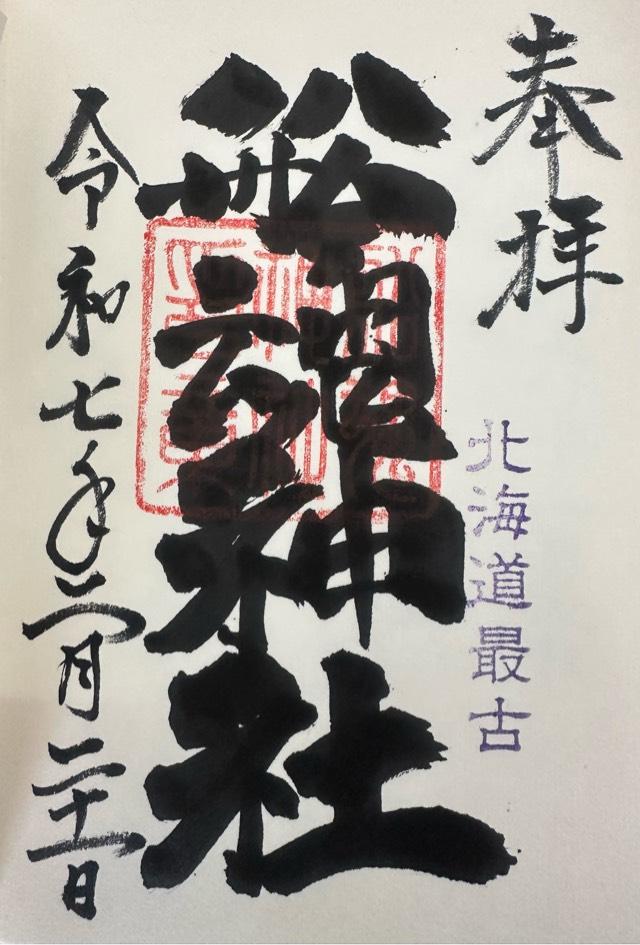 奉拝
北海道最古
舩魂神社
令和七年二月二十一日